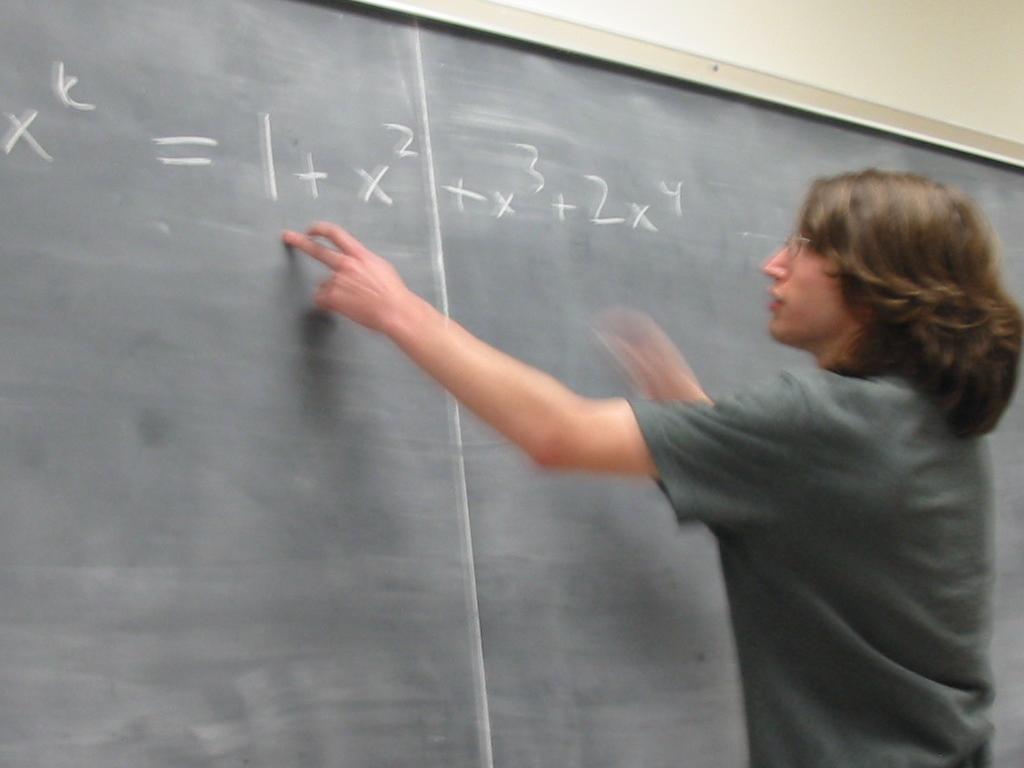 x^k = 1 + x^2 + x^3 + 2x^4